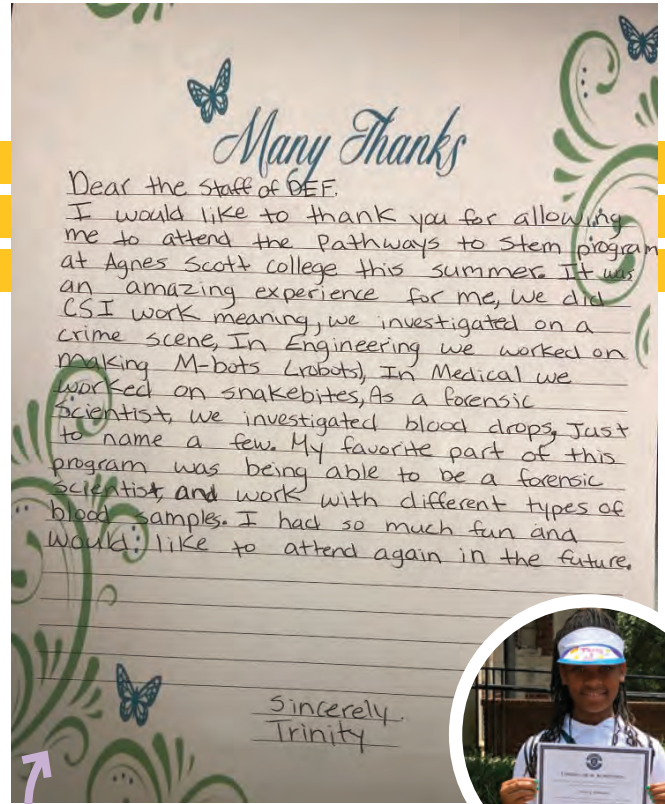 Many Thanks
Dear the Staff of DEF.
I would like to thank you for allowing
me to attend the Pathways to Stem program
at Agnes Scott college this summer. It was
an amazing experience for me, We did
CSI work meaning, we investigated on a
crime scene, In Engineering we worked on
making M-bots (robots), In Medical we
worked on snakebites, As a forensic
Scientist, we investigated blood drops, Just
to name a few. My favorite part of this
program was being able to be a forensic
Scientist, and work with different types of
blood samples. I had so much fun and
would like to attend again in the future.
Sincerely.
Trinity